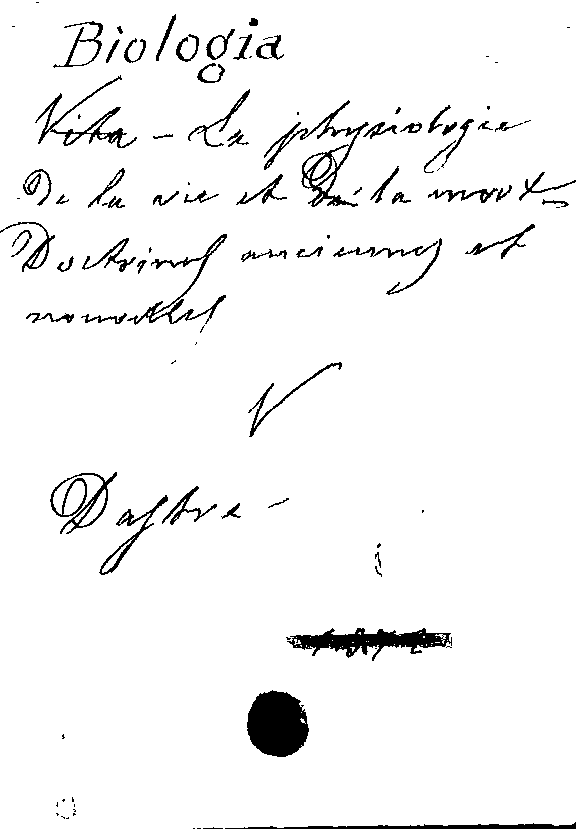 Biologia
Vita - La physiologie
De la vie et De la mort -
Doctrines anciennes et
nouvelles
V
Dastre -